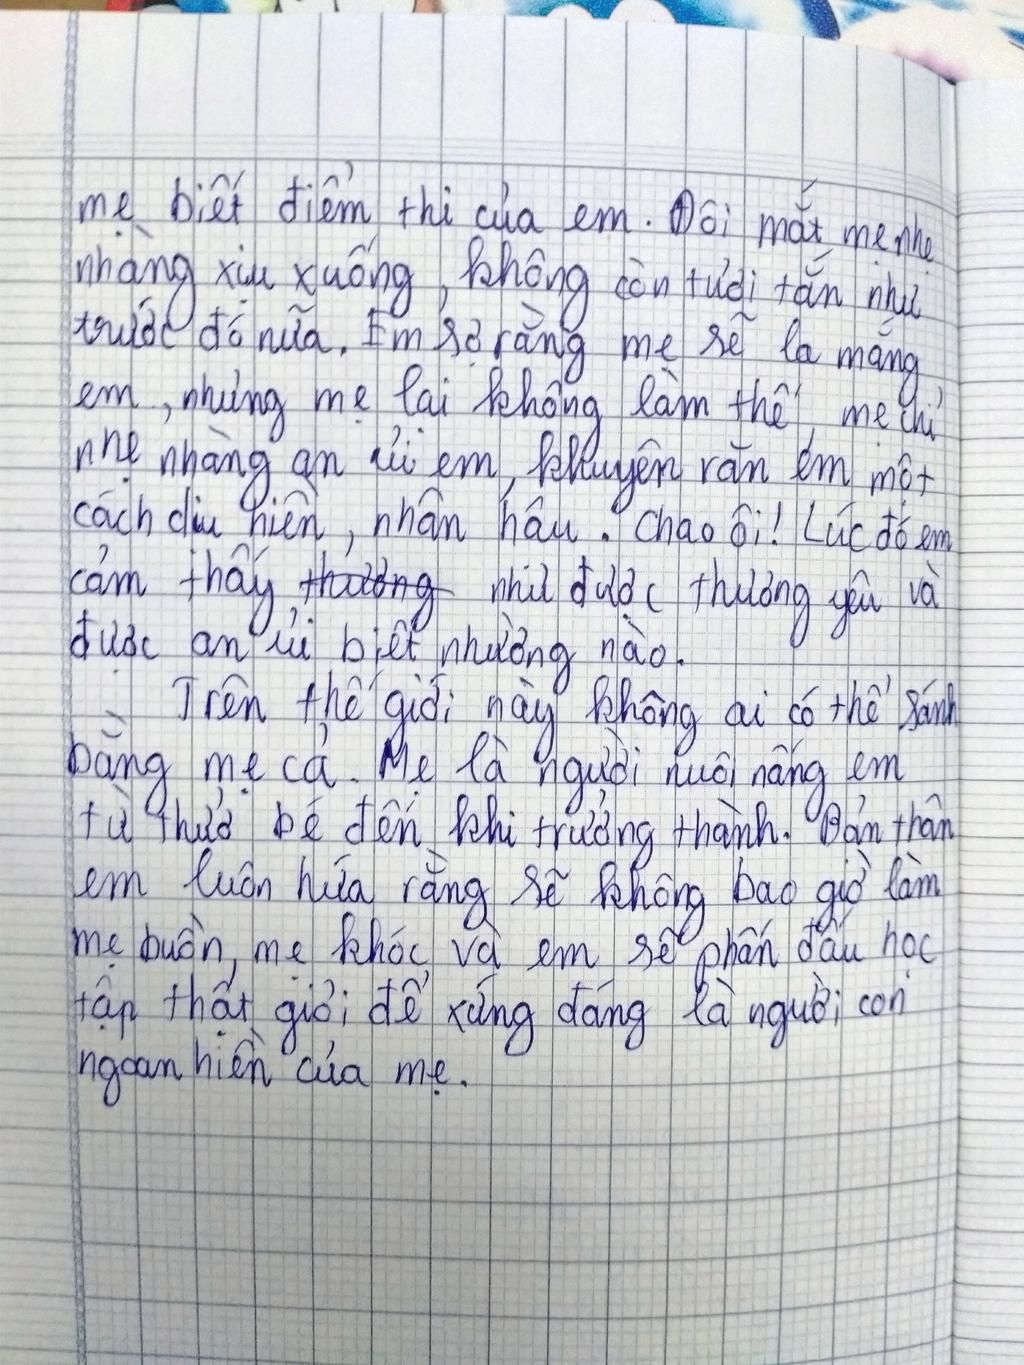 mẹ biết điểm thi của em. Đôi mắt mẹ nhẹ
nhàng xịu xuống, không còn tươi tắn như
trước đó nữa. Em sợ rằng mẹ sẽ la mắng
em, nhưng mẹ lại không làm thế, mẹ chỉ
nhẹ nhàng an ủi em, khuyên răn em một
cách dịu hiền, nhân hậu. Chao ôi! Lúc đó em
cảm thấy thương như được thương yêu và
được an ủi biết nhường nào.
Trên thế giới này không ai có thể sánh
bằng mẹ cả. Mẹ là người nuôi nấng em
từ thuở bé đến khi trưởng thành. Bản thân
em luôn hứa rằng sẽ không bao giờ làm
mẹ buồn, mẹ khóc và em sẽ phấn đấu học
tập thật giỏi để xứng đáng là người con
ngoan hiền của mẹ.